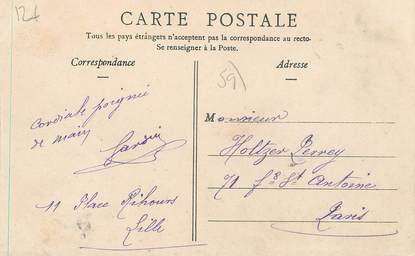 124
CARTE POSTALE
Tous les pays étrangers n'acceptent pas la correspondance au recto-
Se renseigner à la Poste.
Correspondance
Adresse
59
Cordiale poignée
de main
11 Place Rihours
Lille
Monsieur
Holtzer Perrey
71 fg St Antoine
Paris